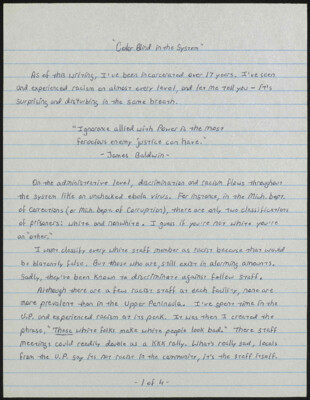 "Color Blind in the System"
As of this writing, I've been incarcerated over 17 years. I've seen
and experienced racism on almost every level, and let me tell you - it's
surprising and disturbing in the same breath.
"Ignorance allied with Power is the most
ferocious enemy justice can have."
- James Baldwin -
On the administrative level, discrimination and racism flows throughout
the system like an unchecked ebola virus. For instance, in the Mich. Dept.
of Corrections (or Mich. Dept. of Corruption), there are only two classifications
of prisoners: white and nonwhite. I guess if you're not white you're
an "other."
I won't classify every white staff member as racist because that would
be blatantly false. But those who are, still exist in alarming amounts.
Sadly, they've been known to discriminate against fellow staff.
Although there are a few racist staff at each facility, none are
more prevalent than in the Upper Peninsula. I've spent time in the
U.P. and experienced racism at its peak. It was then I created the
phrase, "Those white folks make white people look bad." Those staff
meetings could readily double as a KKK rally. What's really sad, locals
from the U.P. say its not racist in the community, it's the staff itself.
- 1 of 4 -